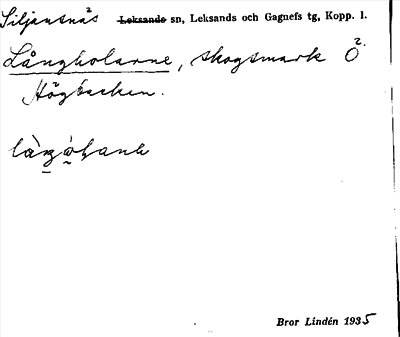 Siljansnäs ~~Leksands~~ sn, Leksands och Gagnefs tg, Kopp. l.
Långholarne, skogsmark Ö
Högbacken.
Bror Lindén 1935